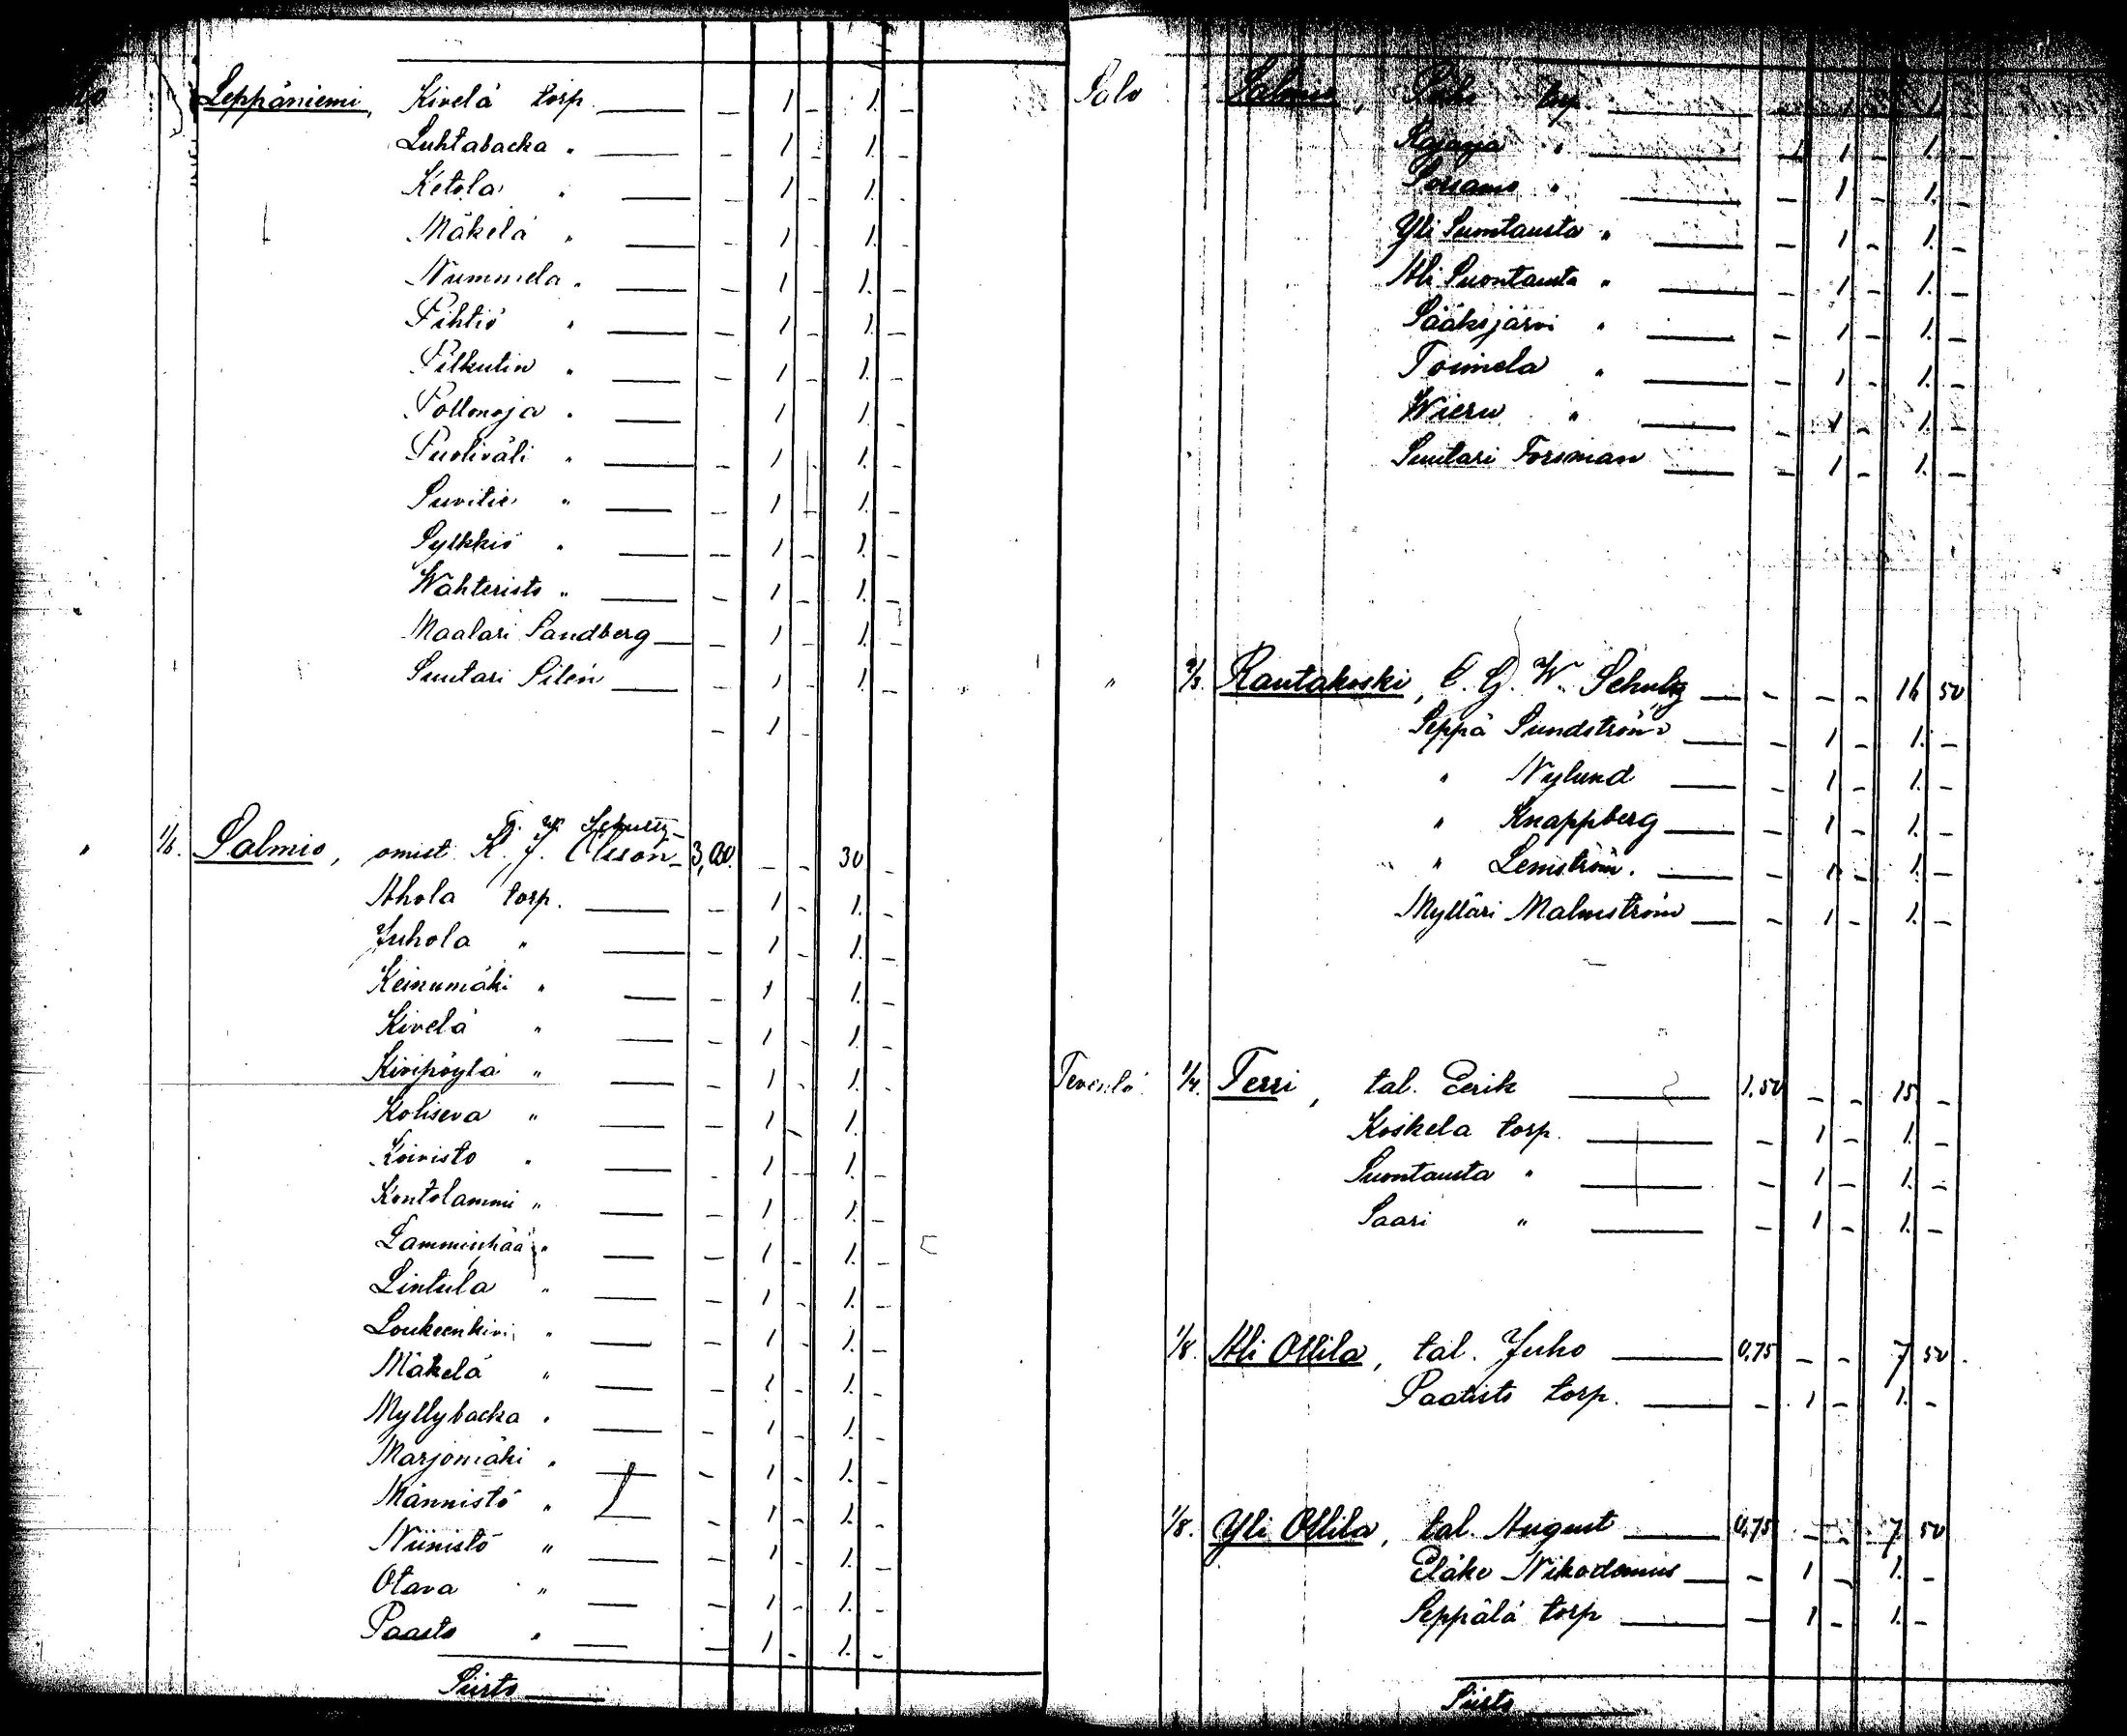 Leppäniemi, Kivelä torp. — — 1 — 1. —
Luhtabacka " — — 1 — 1. —
Ketola " — — 1 — 1. —
Mäkelä " — — 1 — 1. —
Nummela " — — 1 — 1. —
Pihtiö " — — 1 — 1. —
Pilkutin " — — 1 — 1. —
Pollonoja " — — 1 — 1. —
Puoliväli " — — 1 — 1. —
Suvitie " — — 1 — 1. —
Sylkkiö " — — 1 — 1. —
Wahteristo " — — 1 — 1. —
Maalari Sandberg — — 1 — 1. —
Suutari Silén — — 1 — 1. —
— 1 —
G. W. Schultz
" 1/6. Salmio, omist. K. J. Olsson — 3,00. — — 30
Ahola torp. — — 1 — 1. —
Juhola " — — 1 — 1. —
Keinumäki " — — 1 — 1. —
Kivelä " — — 1 — 1. —
Kivipöytä " — — 1 — 1. —
Koliseva " — — 1 — 1. —
Koivisto " — — 1 — 1. —
Kontolammi " — — 1 — 1. —
Lamminpää " — — 1 — 1. —
Lintula " — — 1 — 1. —
Loukeenkivi " — — 1 — 1. —
Mäkelä " — — 1 — 1. —
Myllybacka " — — 1 — 1. —
Marjomäki " — — 1 — 1. —
Männistö " — — 1 — 1. —
Niinistö " — — 1 — 1. —
Otava " — — 1 — 1. —
Paasto " — — 1 — 1. —
Siirto —
Salo Salmio, torp. — — 1 — 1. —
Rajaoja " — 1 1 — 1. —
" — — 1 — 1. —
Yli Suontausta " — — 1 — 1. —
Ali Suontausta " — — 1 — 1. —
Sääksjärvi " — — 1 — 1. —
Toimela " — — 1 — 1. —
Wieru " — — 1 — 1. —
Suutari Forsman — — 1 — 1. —
" 2/3 Rautakoski, G. W. Schultz — — — — 16 50
Seppä Sundström — — 1 — 1. —
" Nylund — — 1 — 1. —
" Knappberg — — 1 — 1. —
" Lemström. — — 1 — 1. —
Mylläri Malmström — — 1 — 1. —
Tevenlä 1/4. Terri, tal. Eerik — 1.50 — — 15 —
Koskela torp. — — 1 — 1. —
Suontausta " — — 1 — 1. —
Saari " — — 1 — 1. —
1/8. Ali Ollila, tal. Juho — 0,75 — — 7 50.
Paatisto torp. — — 1 — 1. —
1/8. Yli Ollila, tal. August — 0,75 — — 7 50
Eläke Nikodemus — — 1 — 1. —
Seppälä torp — — 1 — 1. —
Siirto —